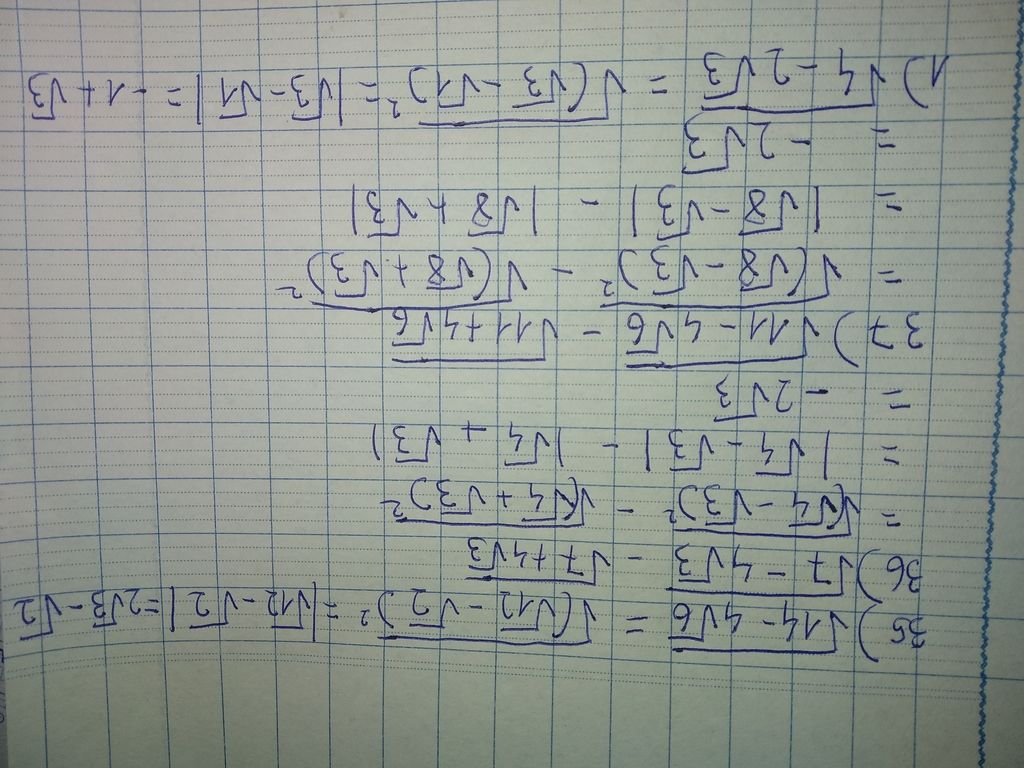 35) √14 - 4√6 = √(√12 - √2)² = |√12 - √2| = 2√3 - √2
36) √7 - 4√3 - √7 + 4√3
= √(√4 - √3)² - √(√4 + √3)²
= |√4 - √3| - |√4 + √3|
= - 2√3
37) √11 - 4√6 - √11 + 4√6
= √(√8 - √3)² - √(√8 + √3)²
= |√8 - √3| - |√8 + √3|
= - 2√3
1) √4 - 2√3 = √(√3 - √1)² = |√3 - √1| = - 1 + √3